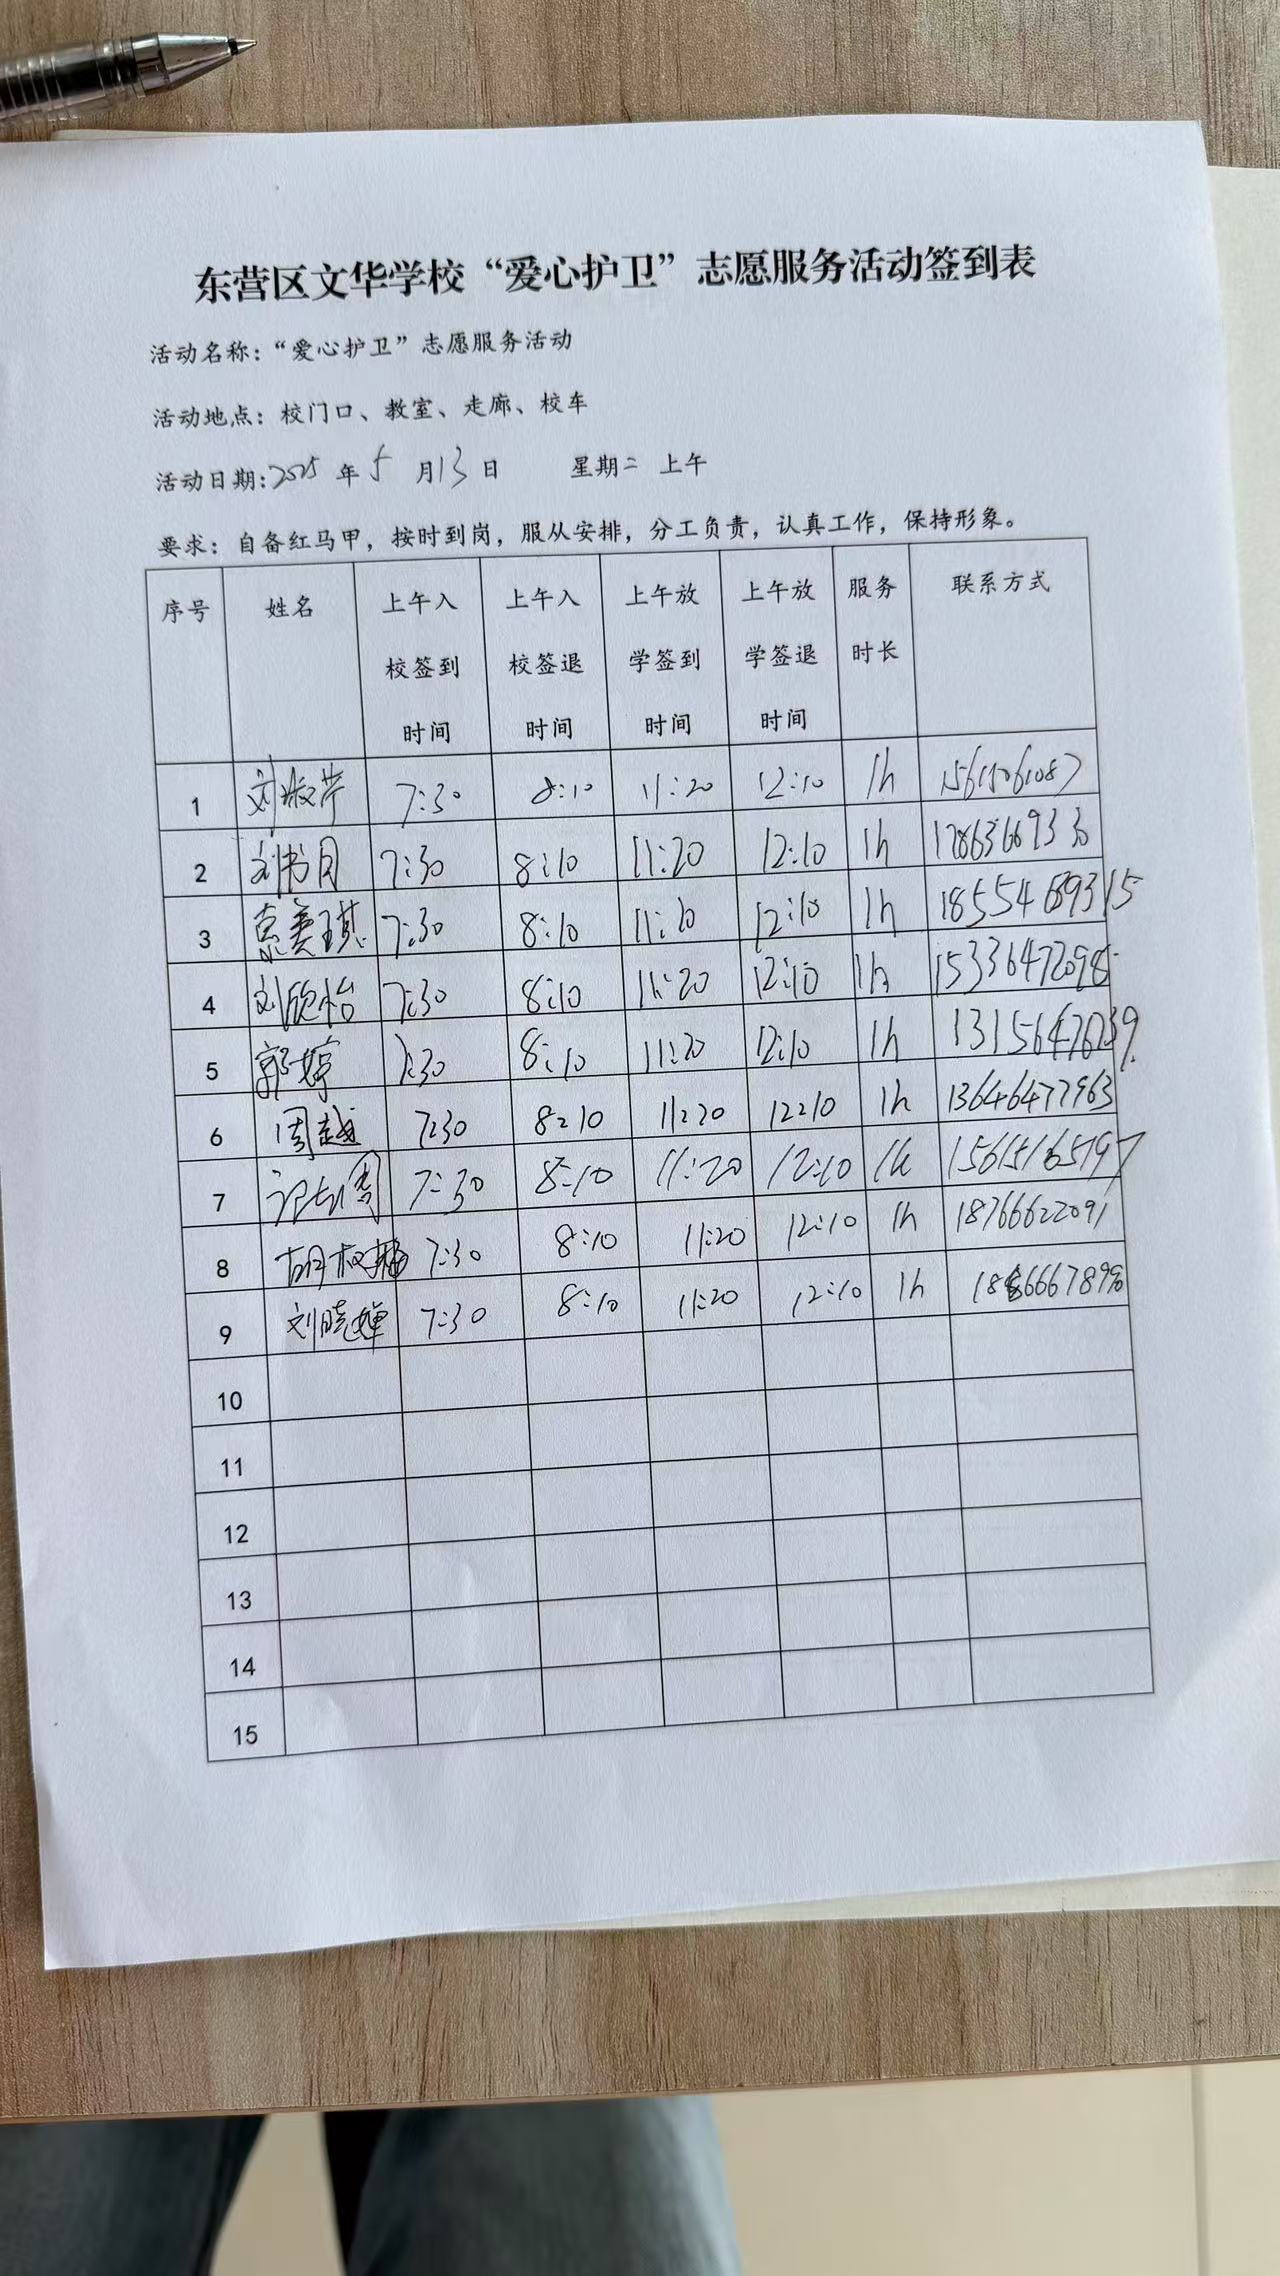 东营区文华学校“爱心护卫”志愿服务活动签到表
活动名称：“爱心护卫”志愿服务活动
活动地点：校门口、教室、走廊、校车
活动日期:2025 年 5 月 13 日 星期二 上午
要求：自备红马甲，按时到岗，服从安排，分工负责，认真工作，保持形象。
序号 姓名 上午入校签到时间 上午入校签退时间 上午放学签到时间 上午放学签退时间 服务时长 联系方式
1 刘淑芹 7:30 8:10 11:20 12:10 1h 15615061087
2 刘书月 7:30 8:10 11:20 12:10 1h 17863669330
3 袁美琪 7:30 8:10 11:20 12:10 1h 18554689315
4 刘欣怡 7:30 8:10 11:20 12:10 1h 15336472098
5 郭婷 7:30 8:10 11:20 12:10 1h
6 周越 7:30 8:10 11:20 12:10 1h 13646477963
7 7:30 8:10 11:20 12:10 1h 15615165197
8 7:30 8:10 11:20 12:10 1h 18766622091
9 刘晓婵 7:30 8:10 11:20 12:10 1h
10
11
12
13
14
15